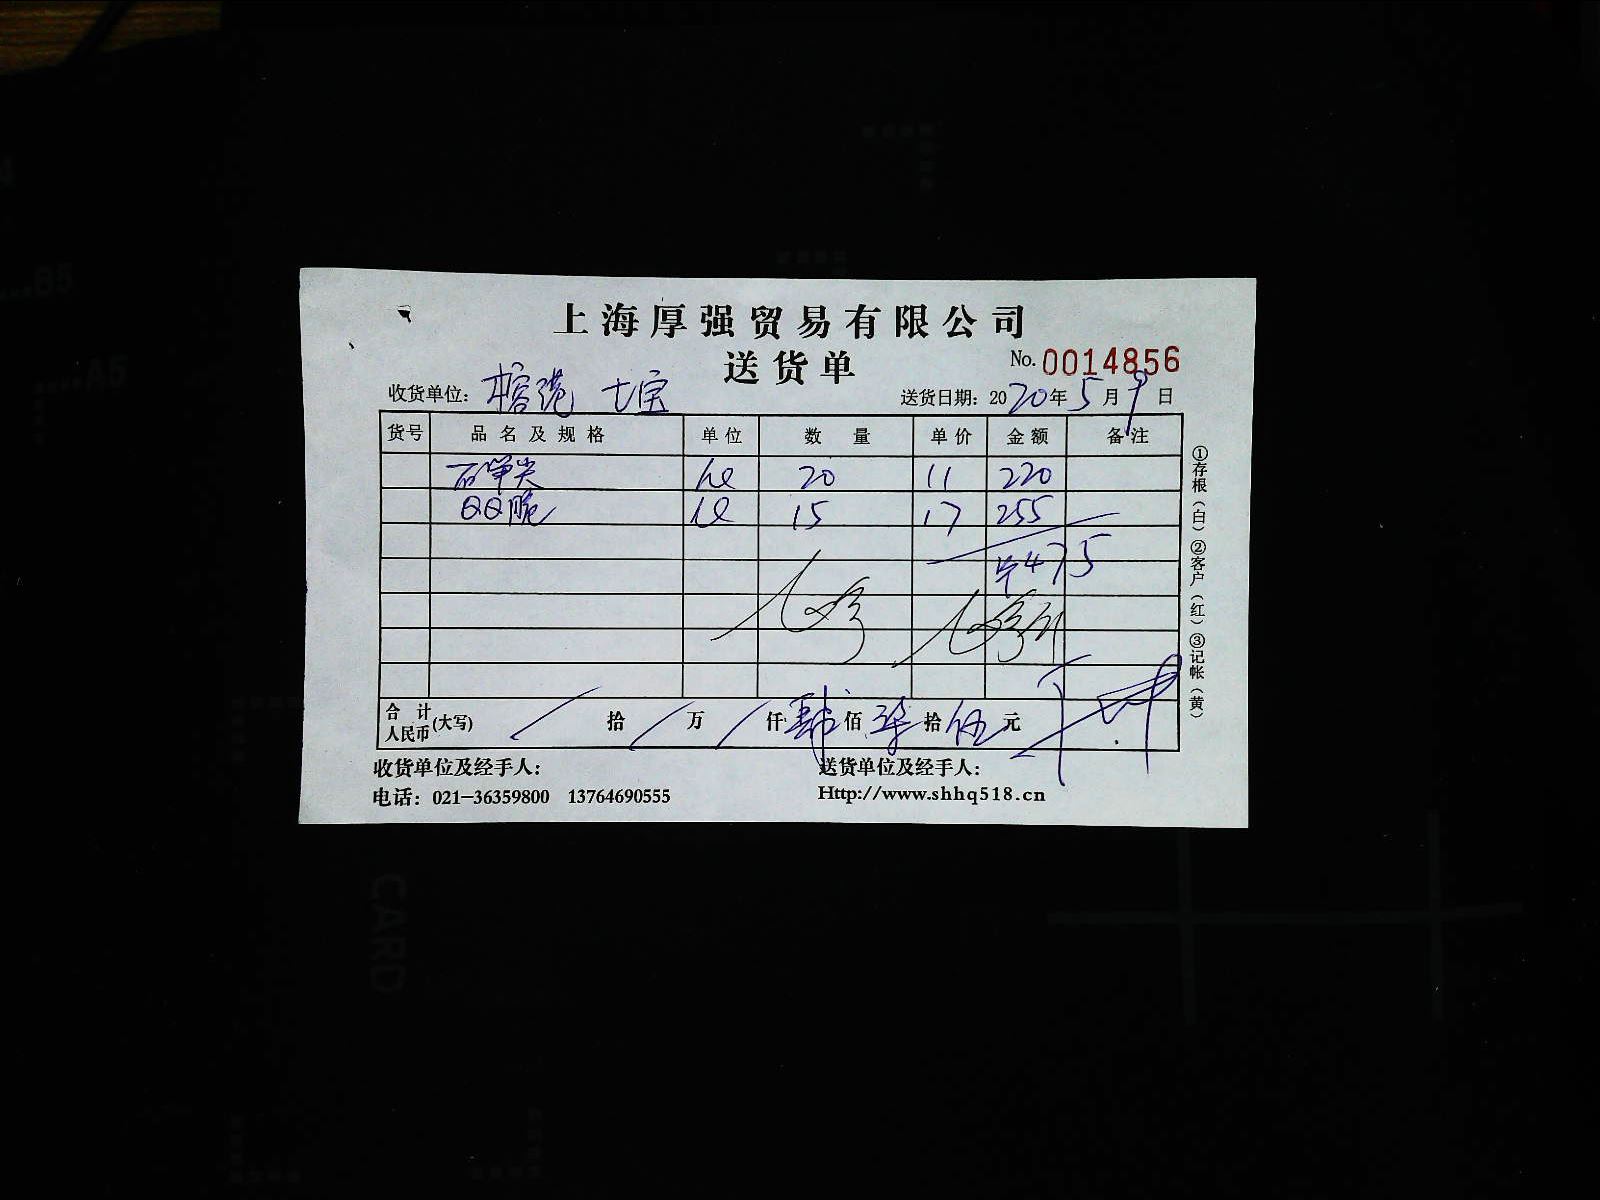 上海厚强贸易有限公司
送货单 No. 0014856
收货单位: 榕港 七宝 送货日期: 2020年5月9日
货号 品名及规格 单位 数量 单价 金额 备注
20 11 220
QQ脆 15 17 255
475
合计人民币(大写) 拾 万 仟 肆 佰 柒 拾 伍 元
收货单位及经手人: 送货单位及经手人:
电话: 021-36359800 13764690555 Http://www.shhq518.cn
①存根(白) ②客户(红) ③记帐(黄)
B5
A5
CARD